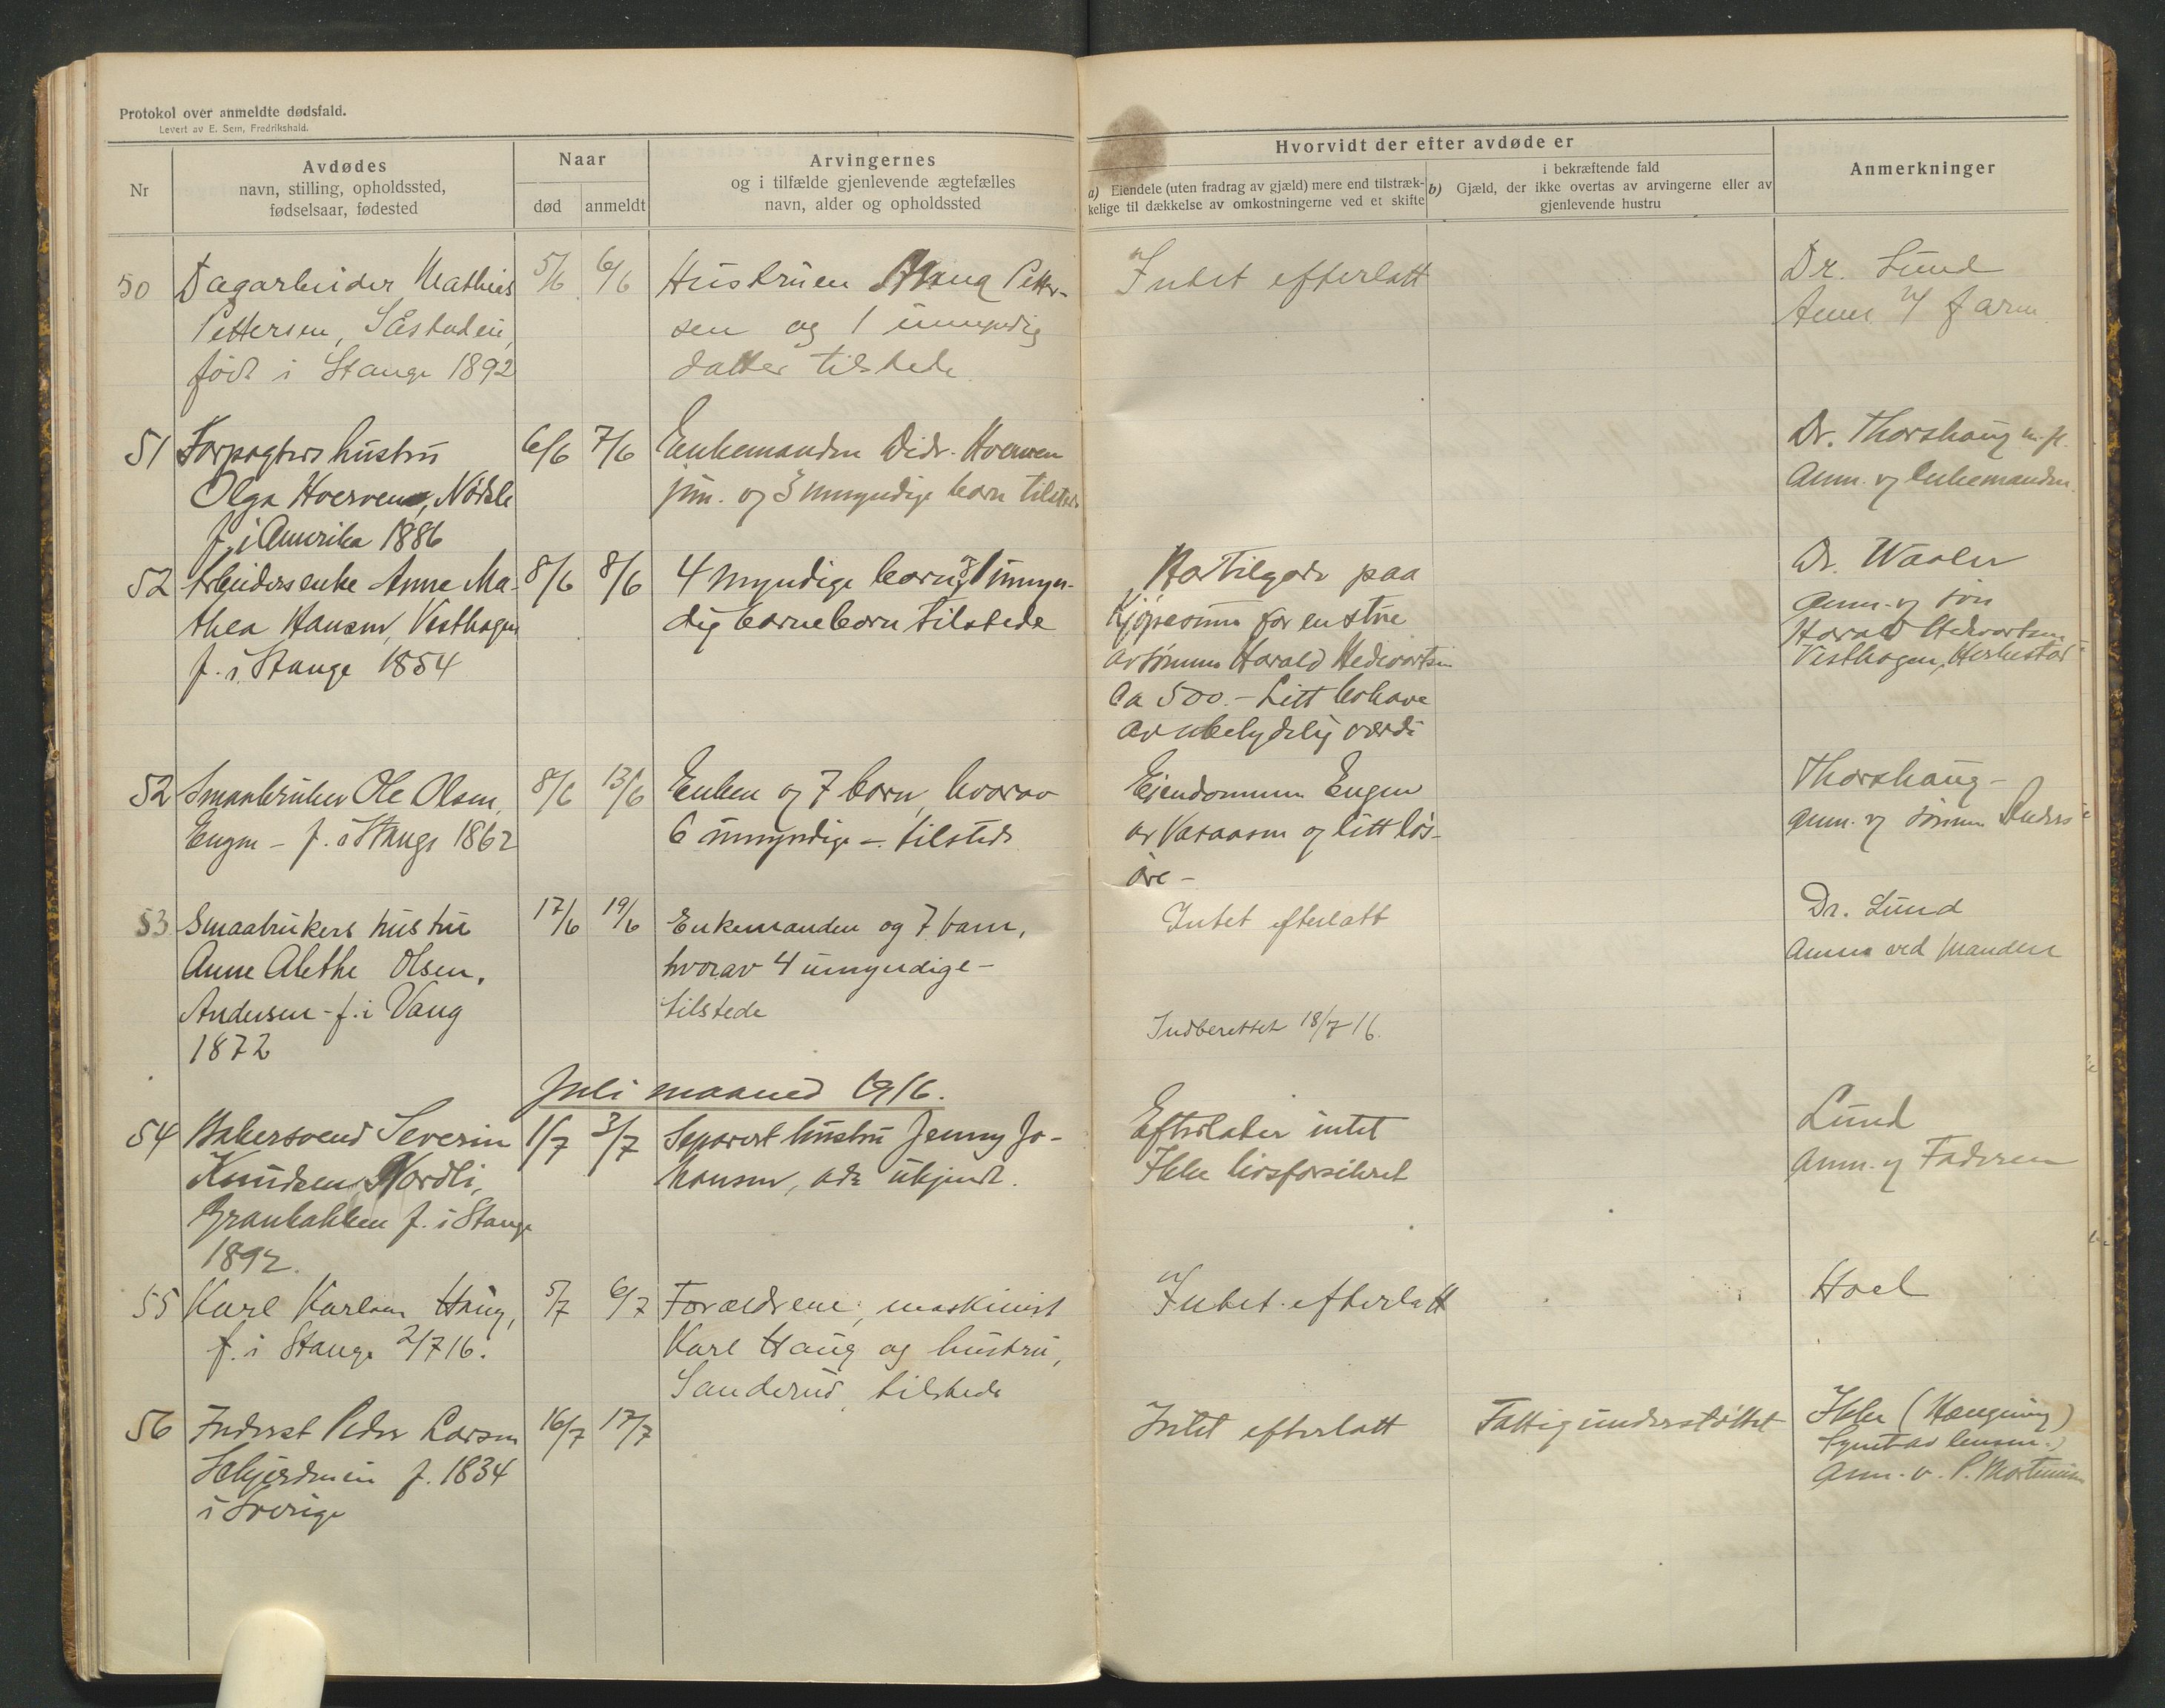 Protokol over anmeldte dødsfald.
Levert av E. Sem, Fredrikshald.
Nr
Avdødes
navn, stilling, opholdssted,
fødselsaar, fødested
Naar
død
anmeldt
Arvingernes
og i tilfælde gjenlevende ægtefælles
navn, alder og opholdssted
Hvorvidt der efter avdøde er
a) Eiendele (uten fradrag av gjæld) mere end tilstræk-
kelige til dækkelse av omkostningerne ved et skifte
i bekræftende fald
b) Gjæld, der ikke overtas av arvingerne eller av
gjenlevende hustru
Anmerkninger
50
Dagarbeider Mathias
Pettersen,
født i Stange 1892
5/6
6/6
Hustruen Petter-
sen og 1 umyndig
datter tilstede
Intet efterlatt
Dr. Lund
Anm.
51
Forpagters hustru
Olga Hoerven,
f. i Amerika 1886
6/6
7/6
Enkemanden Didr. Hoerven
jun. og 3 umyndige barn tilstede
Dr. Thorshaug
Anm. v/ Enkemanden
52
Arbeiders enke Anne Ma-
thea Hansen, Vesthagen
f. i Stange 1854
8/6
8/6
4 myndige barn og 1 umyn-
dig barnebarn tilstede
Har tilgode paa
kjøpesum for en stue
av sønnen Harald Hedevartsen
Ca 500.- Litt bohave
av ubetydelig værdi
Dr. Waaler
Anm. v/ søn
Harald Hedevartsen
Vesthagen,
52
Smaabruker Ole Olsen
Engen - f. i Stange 1862
8/6
13/6
Enken og 7 barn, hvorav
6 umyndige - tilstede
Eiendommen Engen
av Vasaasen og litt løs-
øre -
Thorshaug -
Anm. v/ sønnen Anders
53
Smaabrukers hustru
Anne Alethe Olsen,
Andersen - f. i Vang
1872
17/6
19/6
Enkemanden og 7 barn,
hvorav 4 umyndige -
tilstede
Intet efterlatt
Indberettet 18/7 16.
Dr. Lund
Anm. ved manden
Juli maaned 1916.
54
Bakersvend Severin
Knudsen Nordli,
Granbakken f. i Stange
1892.
1/7
3/7
Separert hustru Jenny Jo-
hansen, adr. ukjendt.
Efterlater intet
Ikke livsforsikret
Lund
Anm. v/ Faderen
55
Karl Karlsen Haug,
f. i Stange 2/7 16.
5/7
6/7
Forældrene, maskinist
Karl Haug og hustru,
Sanderud, tilstede
Intet efterlatt
Hoel
56
Inderst Peder Larsen
f. 1834
i Sverige
16/7
17/7
Intet efterlatt
Fattigunderstøttet
Ikke (Hængning)
Anm. v. P. Mortensen